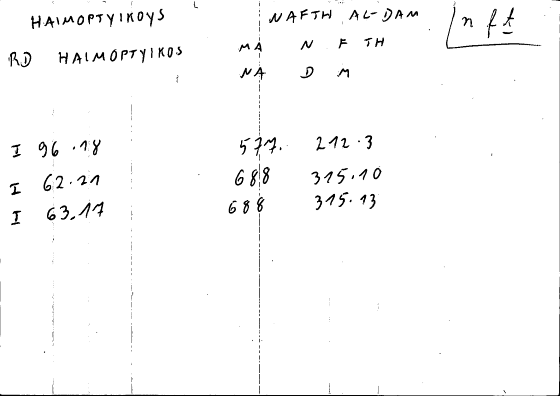 HAIMOPTYIKOYS NAFTH AL-DAM n f t
RD HAIMOPTYIKOS MA N F TH
NA D M
I 96.18 577. 212.3
I 62.21 688 315.10
I 63.17 688 315.13